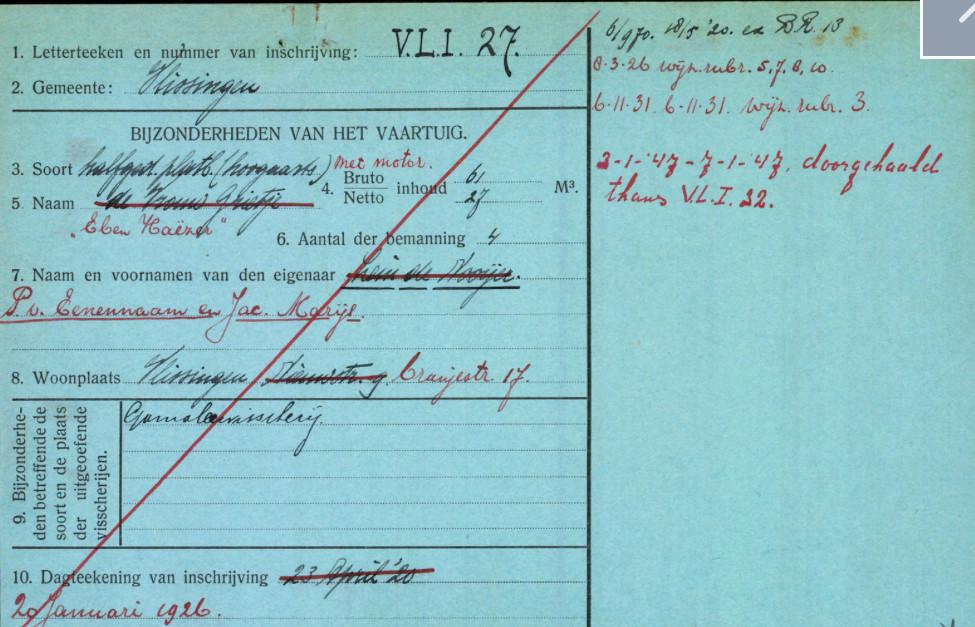 1. Letterteeken en nummer van inschrijving: V.L.I. 27.
2. Gemeente: Vlissingen
BIJZONDERHEDEN VAN HET VAARTUIG.
3. Soort halfged. platb. (hoogaars) met motor.
4. Bruto Netto inhoud 61 27 M³.
5 Naam de Vrouw Grietje
"Eben Haëzer"
6. Aantal der bemanning 4
7. Naam en voornamen van den eigenaar de Nooijer.
P. v. Eenennaam en Jac. Marijs.
8. Woonplaats Vlissingen Nieuwstr. 9 Oranjestr. 17.
9. Bijzonderhe-
den betreffende de
soort en de plaats
der uitgeoefende
visscherijen.
Garnalenvisscherij.
10. Dagteekening van inschrijving 23 April '20
20 Januari 1926.
6/970. 18/5 '20. ex B.R. 13
8-3-26 wijz. rubr. 5, 7, 8, 10.
6-11-31. 6-11-31. wijz. rubr. 3.
2-1-'47 - 7-1-'47. doorgehaald
thans V.L.I. 32.